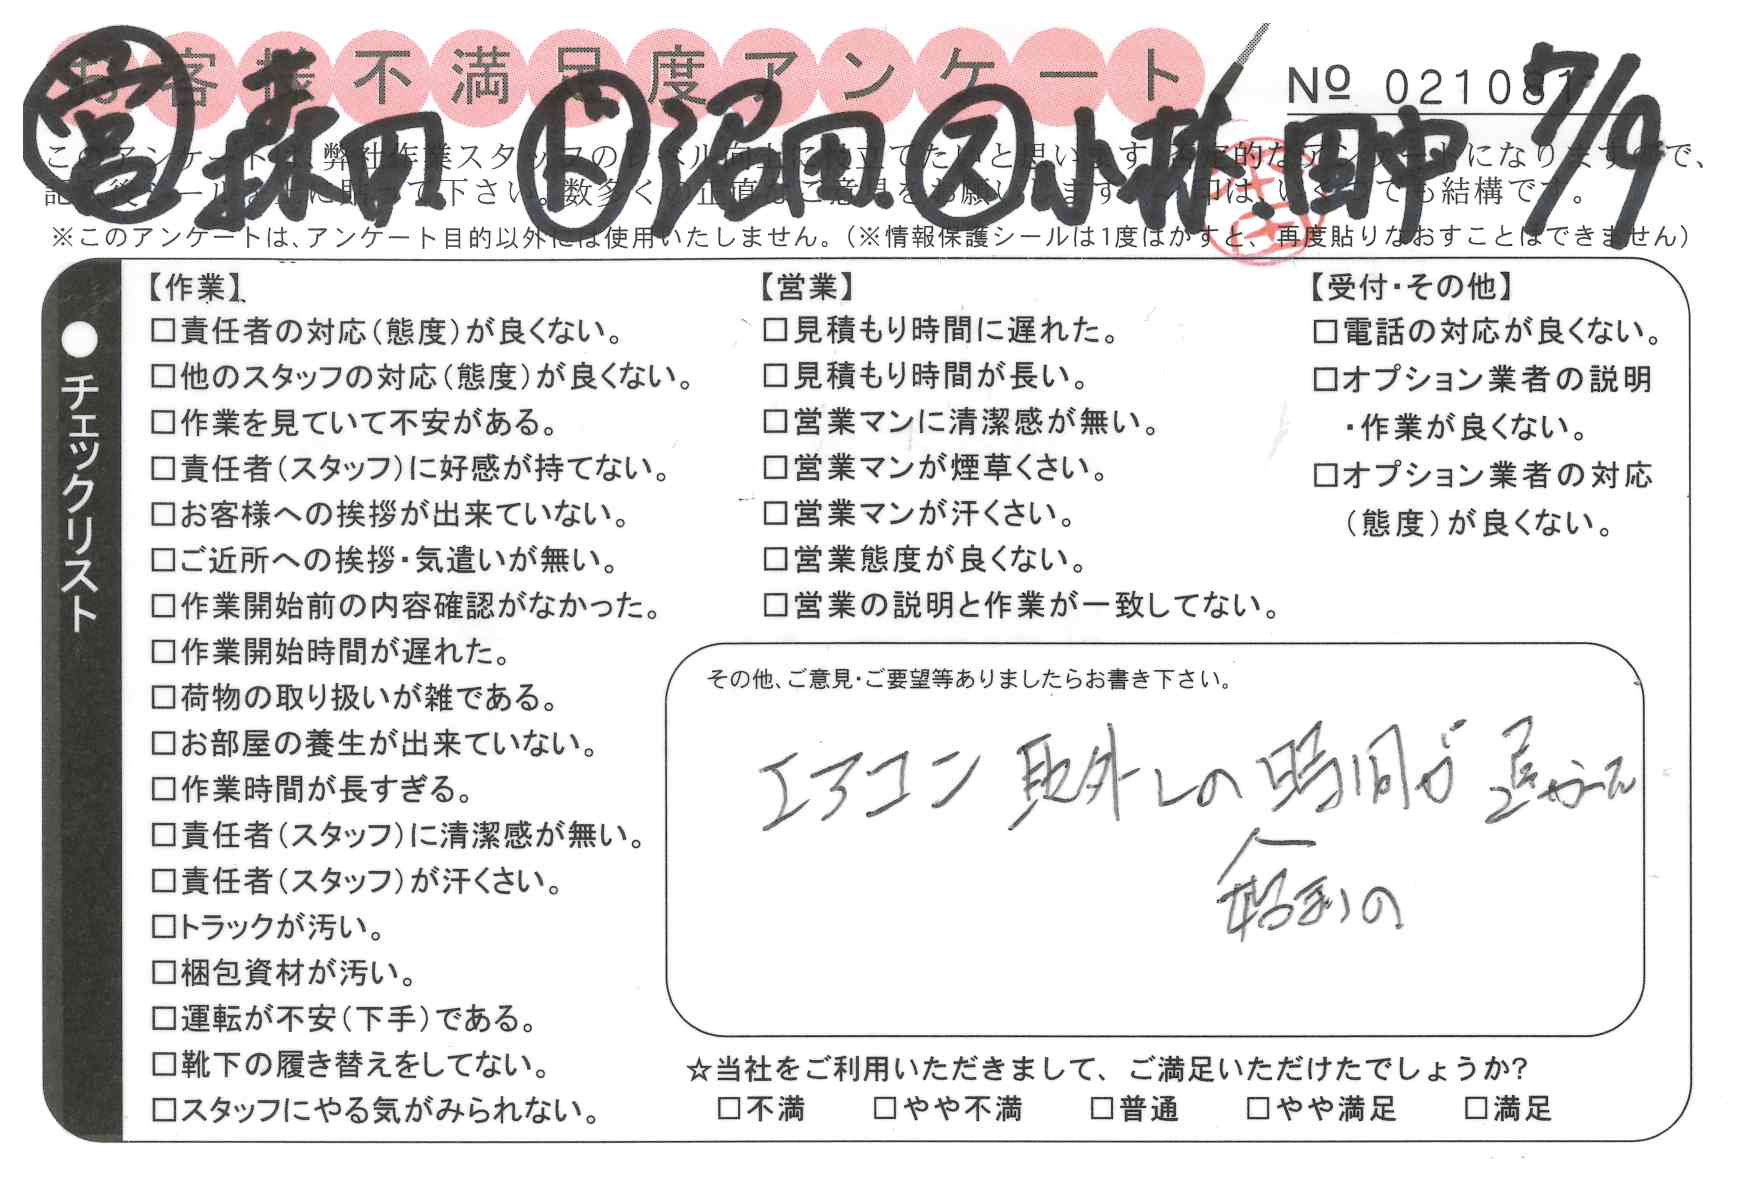 お客様不満足度アンケート
№ 021081
営 森田 ド 沼田、ス 小林、田中 7/9
このアンケートは、弊社作業スタッフのレベル向上に役立てたいと思います。
記入後シールを上に貼って下さい。数多くの正直なご意見をお願いします。いくつでも結構です。
※このアンケートは、アンケート目的以外には使用いたしません。(※情報保護シールは1度はがすと、再度貼りなおすことはできません)
●チェックリスト
【作業】
□責任者の対応(態度)が良くない。
□他のスタッフの対応(態度)が良くない。
□作業を見ていて不安がある。
□責任者(スタッフ)に好感が持てない。
□お客様への挨拶が出来ていない。
□ご近所への挨拶・気遣いが無い。
□作業開始前の内容確認がなかった。
□作業開始時間が遅れた。
□荷物の取り扱いが雑である。
□お部屋の養生が出来ていない。
□作業時間が長すぎる。
□責任者(スタッフ)に清潔感が無い。
□責任者(スタッフ)が汗くさい。
□トラックが汚い。
□梱包資材が汚い。
□運転が不安(下手)である。
□靴下の履き替えをしてない。
□スタッフにやる気がみられない。
【営業】
□見積もり時間に遅れた。
□見積もり時間が長い。
□営業マンに清潔感が無い。
□営業マンが煙草くさい。
□営業マンが汗くさい。
□営業態度が良くない。
□営業の説明と作業が一致してない。
【受付・その他】
□電話の対応が良くない。
□オプション業者の説明
・作業が良くない。
□オプション業者の対応
(態度)が良くない。
その他、ご意見・ご要望等ありましたらお書き下さい。
エアコン 取外しの時間が
☆当社をご利用いただきまして、ご満足いただけたでしょうか?
□不満 □やや不満 □普通 □やや満足 □満足